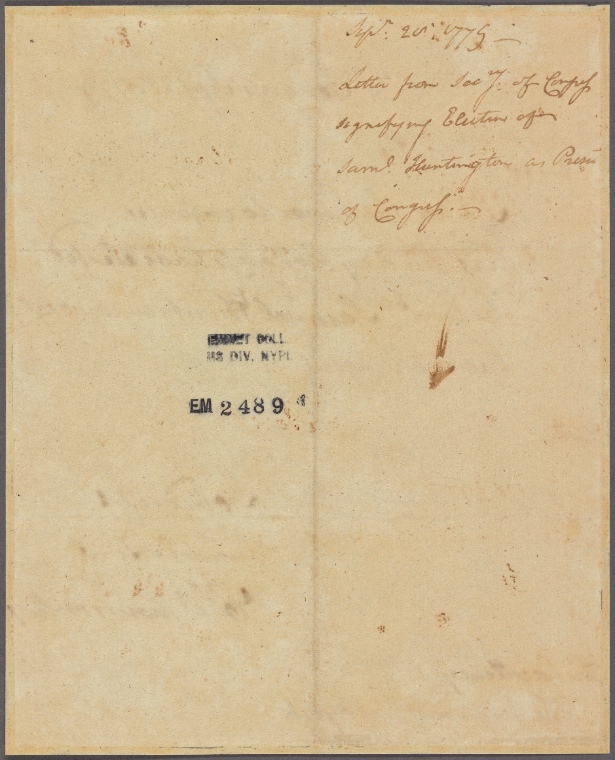 Sepr. 28th 1779
Letter from Secy. of Congress
signifying Election of
Saml. Huntington as Presid
of Congress.
EMMET COLL.
MS DIV. NYPL
EM 2489